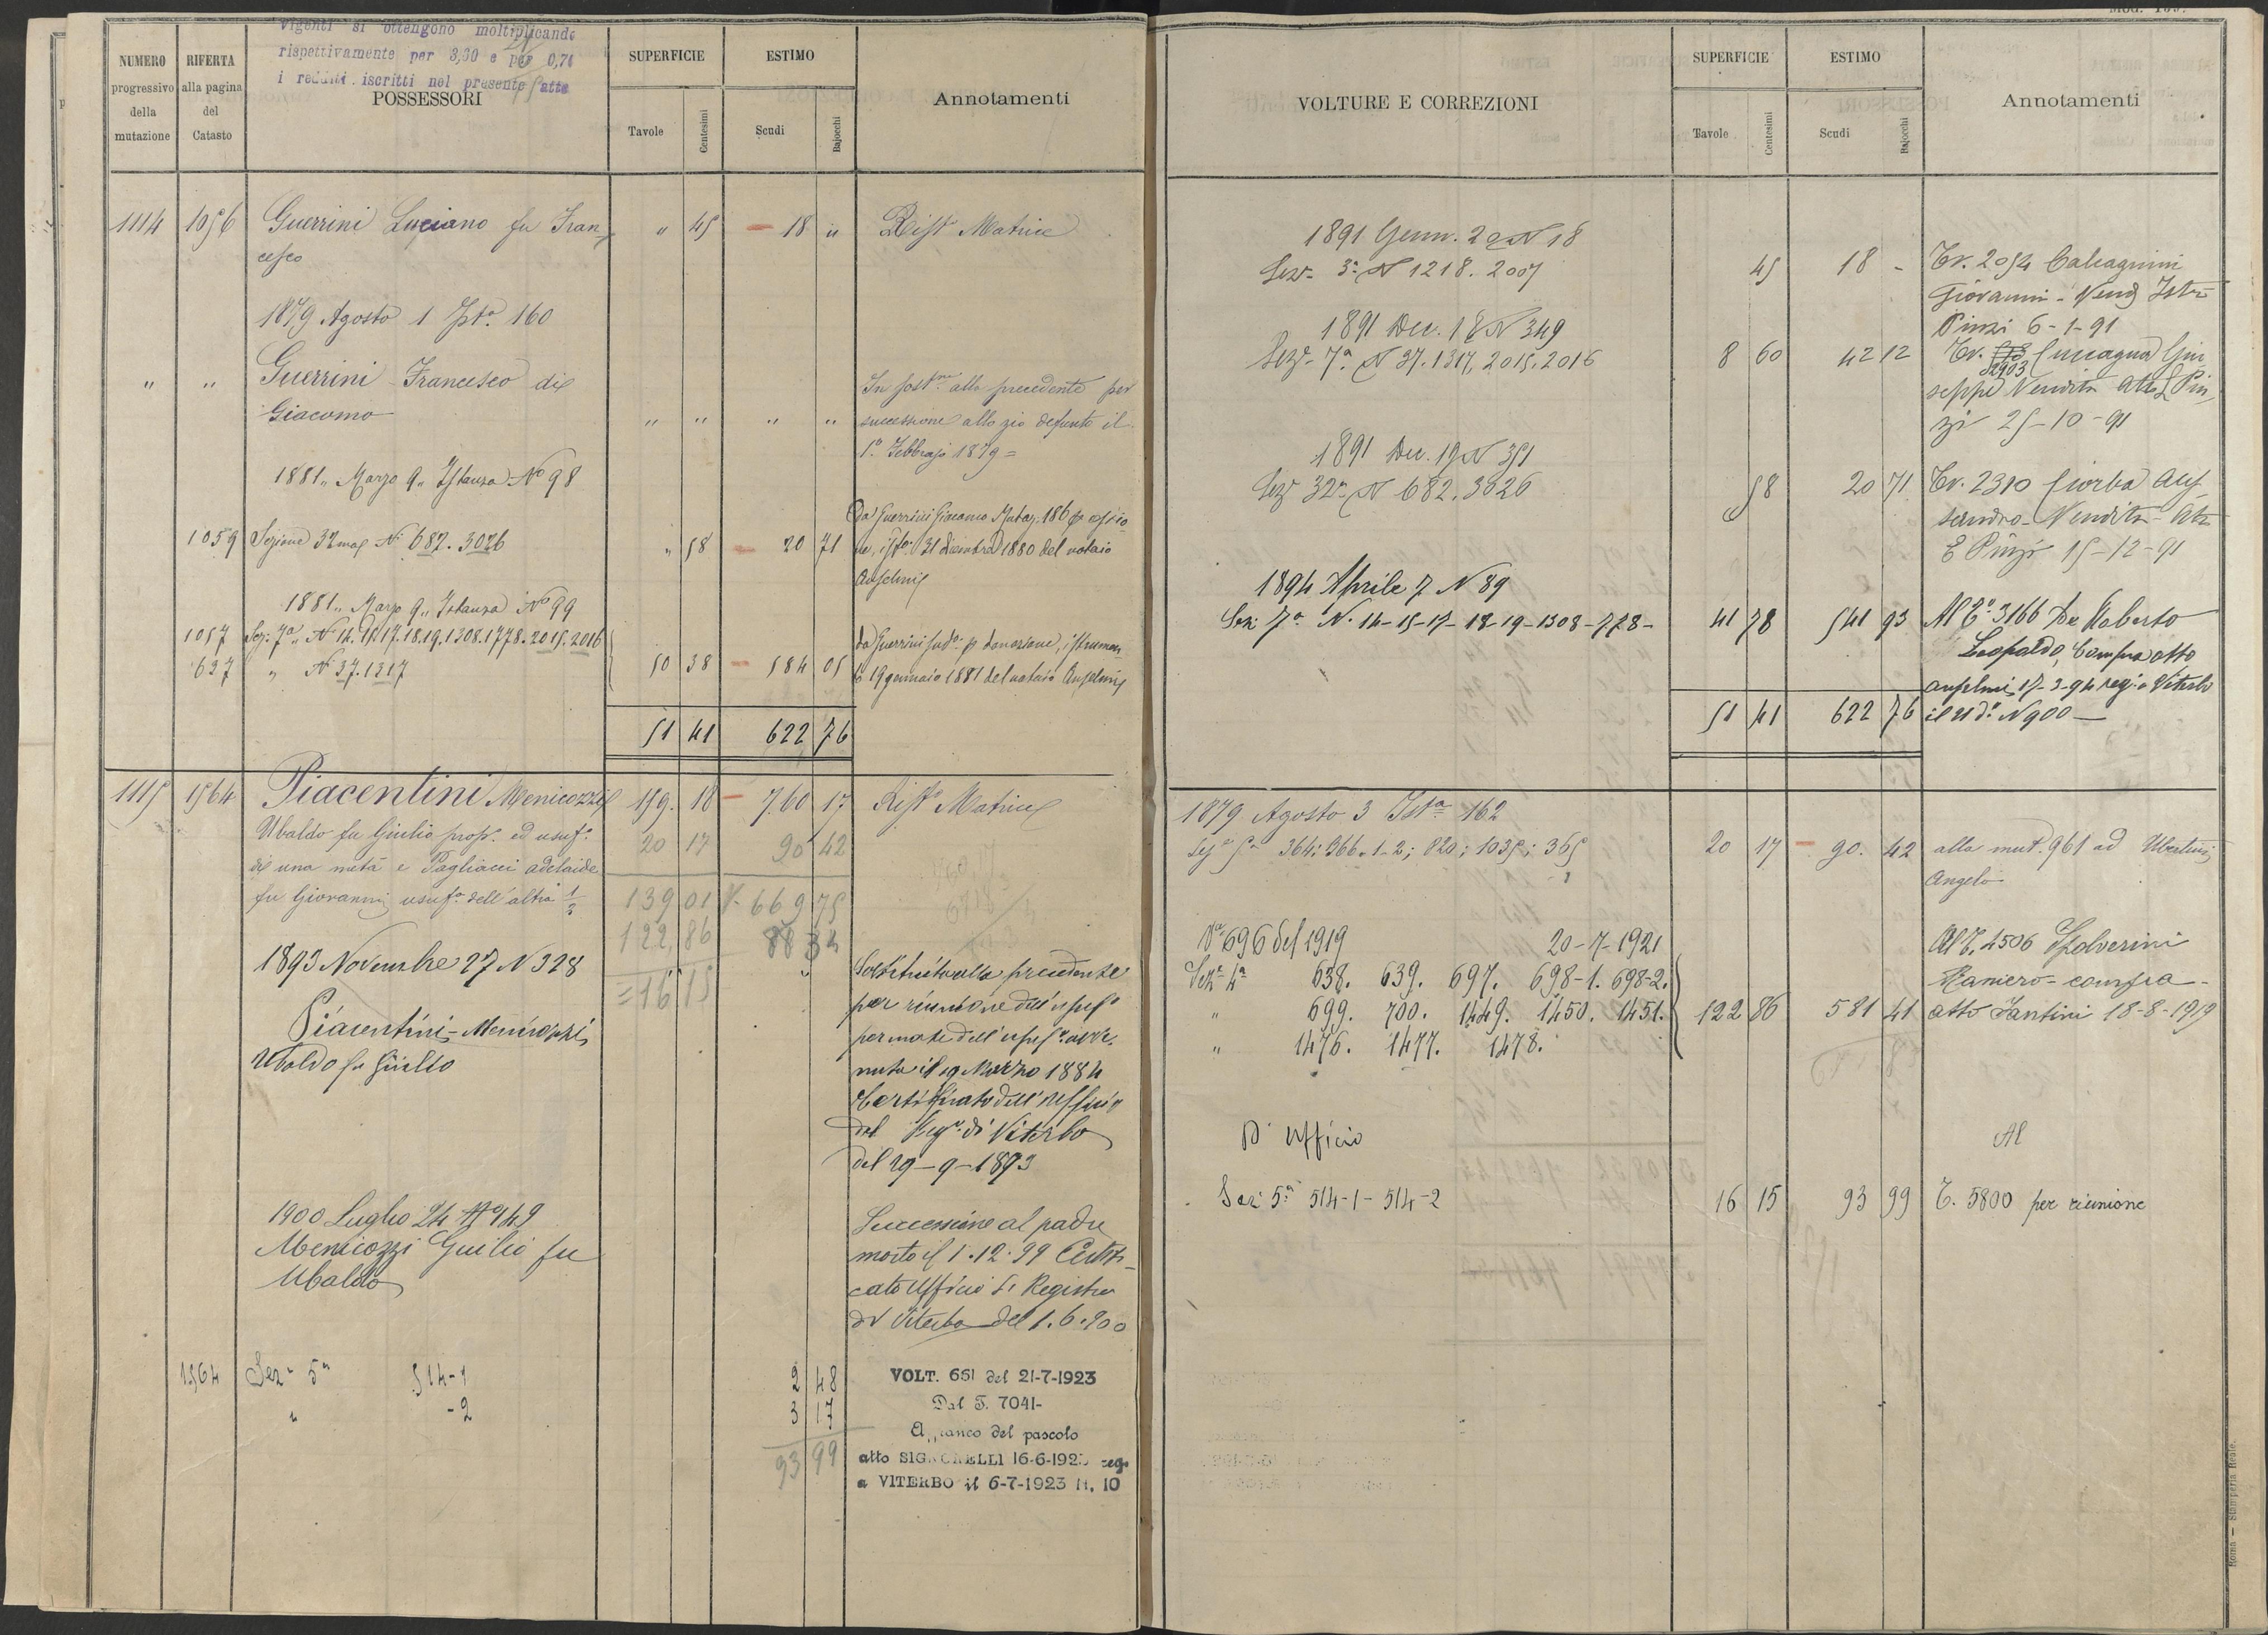 Vigenti si ottengono moltiplicando
rispettivamente per 3,60 e per 0,71
i redditi iscritti nel presente atto
NUMERO progressivo della mutazione
RIFERTA alla pagina del Catasto
POSSESSORI
SUPERFICIE
Tavole Centesimi
ESTIMO
Scudi Bajocchi
Annotamenti
1114 1056 Guerrini Luciano fu Fran- " 45 — 18 " Dist. Matrice
cesco
1879 Agosto 1 Ista. 160
" " Guerrini Francesco di
Giacomo " " " "
In sost.ne alla precedente per
successione allo zio defunto il
1° Febbrajo 1879 =
1881 „ Marzo 9 „ Istanza N° 98
1059 Sezione 32 N. 682. 3026 " 58 — 20 71
Da Guerrini Giacomo Mutaz. 186 p
31 dicembre 1880 del notaio
Anselmi
1881 „ Marzo 9 „ Istanza N° 99
1057 Sez: 7a „ N. 14. 15. 17. 18. 19. 1308. 1778. 2015. 2016
637 " N. 37. 1317 50 38 — 584 05
Da Guerrini sud° p donazione, istrumen-
to 19 gennaio 1881 del notaio Anselmi
51 41 622 76
1115 1564 Piacentini Menicozzi 159. 18 — 760 17 Dist. Matrice
Ubaldo fu Giulio prop. ed usuf. 20 17 90 42
di una metà e Pagliacci Adelaide
fu Giovanni usuf. dell'altra 1/2 139 01 669 75
122,86 88 34
= 16 15
1893 Novembre 27 N 328
Piacentini-Menicozzi
Ubaldo fu Giulio
Sostituito alla precedente
per riunione dell'usuf°
per morte dell'usuf. avve-
nuta il 19 Marzo 1884
Certificato dell'Ufficio
del Reg° di Viterbo
del 29-9-1893
1900 Luglio 24 N° 149
Menicozzi Giulio fu
Ubaldo
Successione al padre
morto il 1.12.99 Certifi-
cato Ufficio di Registro
di Viterbo del 1.6.900
1564 Sez. 5a 514-1 2 48
" -2 3 17
93 99
VOLT. 661 del 21-7-1923
Dal T. 7041-
del pascolo
atto SIGNORELLI 16-6-192 reg.
a VITERBO il 6-7-1923 N. 10
Mod. 109.
VOLTURE E CORREZIONI
SUPERFICIE
Tavole Centesimi
ESTIMO
Scudi Bajocchi
Annotamenti
1891 Genn. 22 N 18
Sez. 3a N 1218. 2007 45 18 -
Tr. 2054 Calcagnini
Giovanni - Vend Istr.
Pinzi 6-1-91
1891 Dec. 18 N 349
Sez. 7a N 37. 1317, 2015. 2016 8 60 42 12
Tr. 2903 Cuccagna Giu
seppe Vendita Atto Pin
zi 25-10-91
1891 Dec. 19 N 351
Sez 32a N 682. 3026 58 20 71
Tr. 2310 Ciorba Ales
sandro - Vendita - Atto
Pinzi 15-12-91
1894 Aprile 7 N 89
Sez. 7a N. 14-15-17-18-19-1308-778- 41 78 541 93
Al T. 3166 De Roberto
Leopoldo, Compra atto
Anselmi 17-3-94 reg. a Viterbo
il 21 d° N 900 —
51 41 622 76
1879 Agosto 3 Ista. 162
Sez. 5a 364; 366. 1-2; 820; 1035; 365 20 17 — 90. 42
alla mut. 961 ad Ubertini
Angelo
N° 696 del 1919 20-7-1921
Sez. 4a 638. 639. 697. 698-1. 698-2.
" 699. 700. 1449. 1450. 1451. 122 86 581 41
" 1476. 1477. 1478.
Al T. 4506 Spolverini
Raniero - compra -
atto Fantini 18-8-1919
D'Ufficio Al
Sez. 5a 514-1-514-2 16 15 93 99 T. 5800 per riunione
Roma — Stamperia Reale.